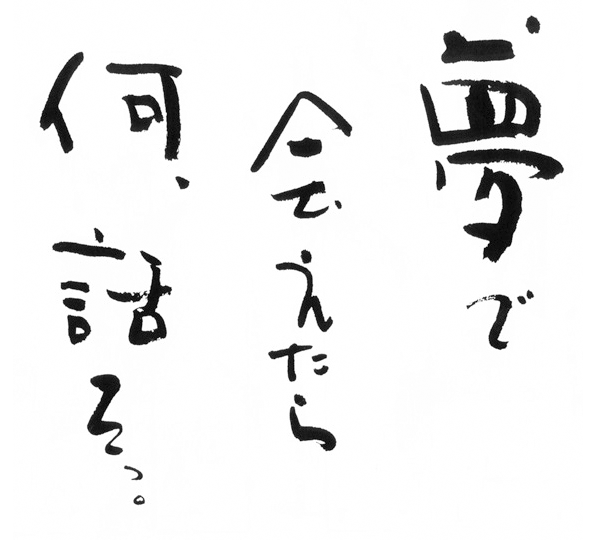 夢で
会えたら
何、話そっ。